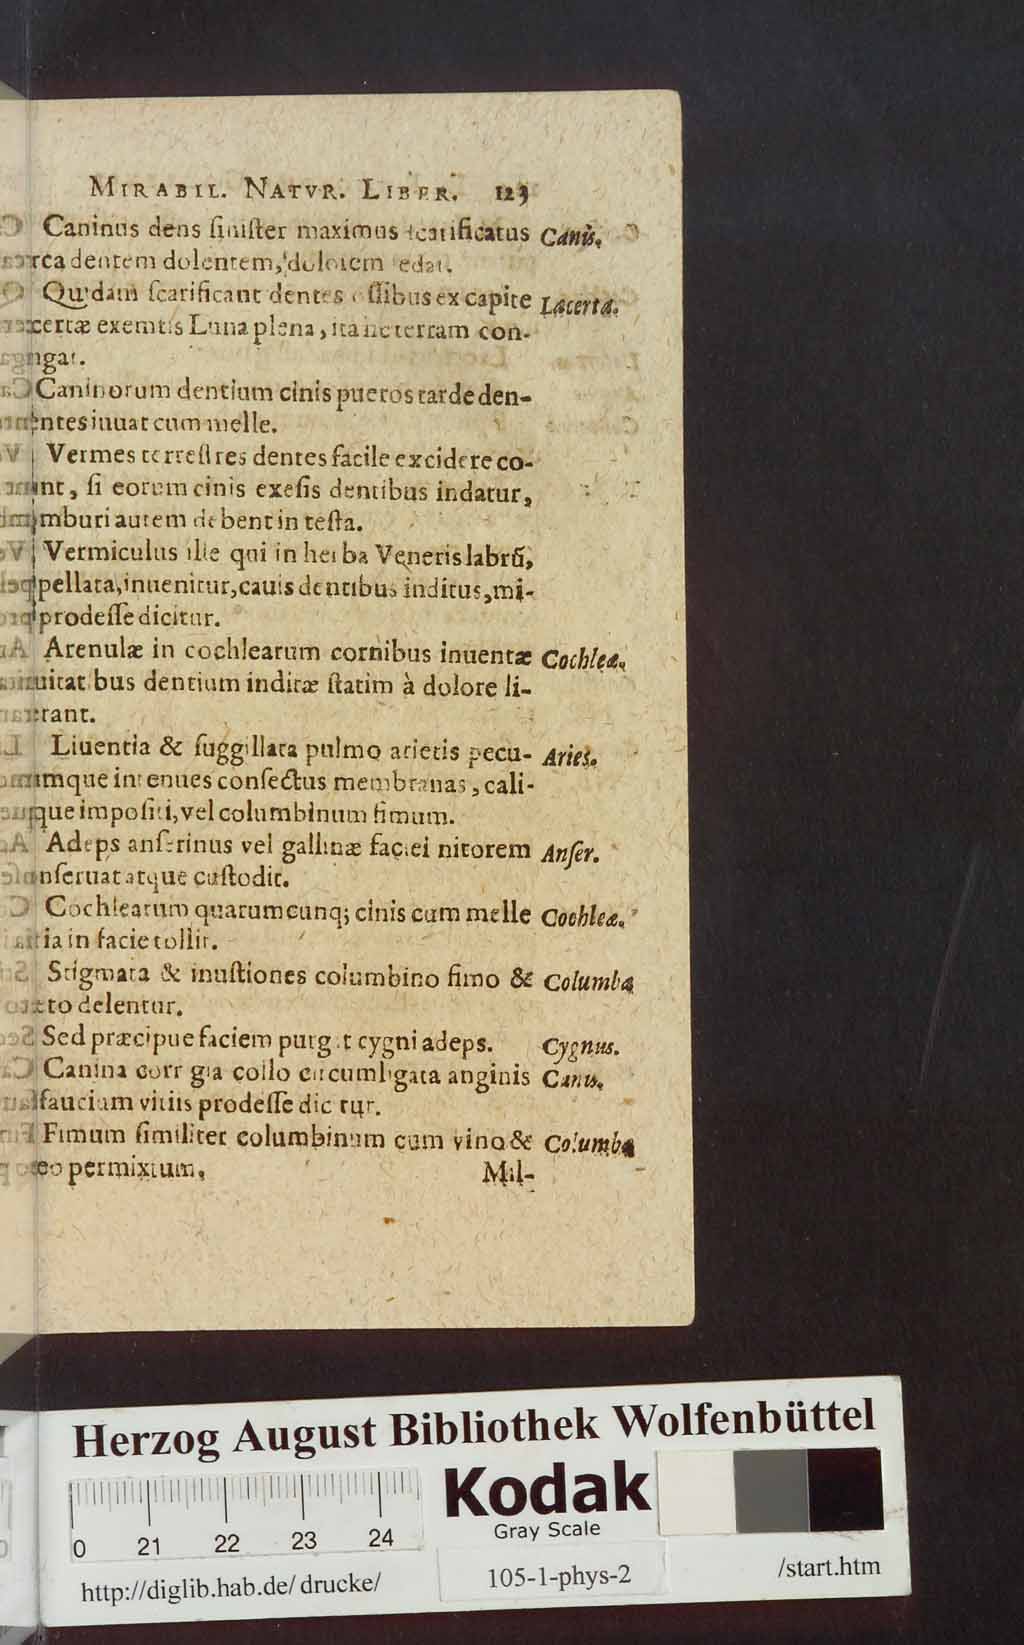 MIRABIL. NATVR. LIBER. 123
Caninus dens ſiniſter maximus ſcarificatus Canis.
dentem dolentem, dolorem sedat.
Quidam ſcarificant dentes oſſibus ex capite Lacerta.
certæ exemtis Luna plena, ita ne terram con-
ngat.
Caninorum dentium cinis pueros tarde den-
ntes iuuat cum melle.
Vermes terreſtres dentes facile excidere co-
nt, ſi eorum cinis exeſis dentibus indatur,
mburi autem debent in teſta.
Vermiculus ille qui in herba Veneris labrū,
pellata, inuenitur, cauis dentibus inditus, mi-
prodeſſe dicitur.
Arenulæ in cochlearum cornibus inuentæ Cochleæ.
uitatibus dentium inditæ ſtatim à dolore li-
rant.
Liuentia & ſuggillata pulmo arietis pecu- Aries.
mque in tenues conſectus membranas, cali-
que impoſiti, vel columbinum fimum.
Adeps anſerinus vel gallinæ faciei nitorem Anſer.
nſeruat atque cuſtodit.
Cochlearum quarumcunq; cinis cum melle Cochleæ.
ia in facie tollit.
Stigmata & inuſtiones columbino fimo & Columba
to delentur.
Sed præcipue faciem purgat cygni adeps. Cygnus.
Canina corrigia collo circumligata anginis Canis.
faucium vitiis prodeſſe dicitur.
Fimum ſimiliter columbinum cum vino & Columba
eo permixtum.
Mil-
Herzog August Bibliothek Wolfenbüttel
0 21 22 23 24
Kodak
Gray Scale
http://diglib.hab.de/drucke/ 105-1-phys-2 /start.htm